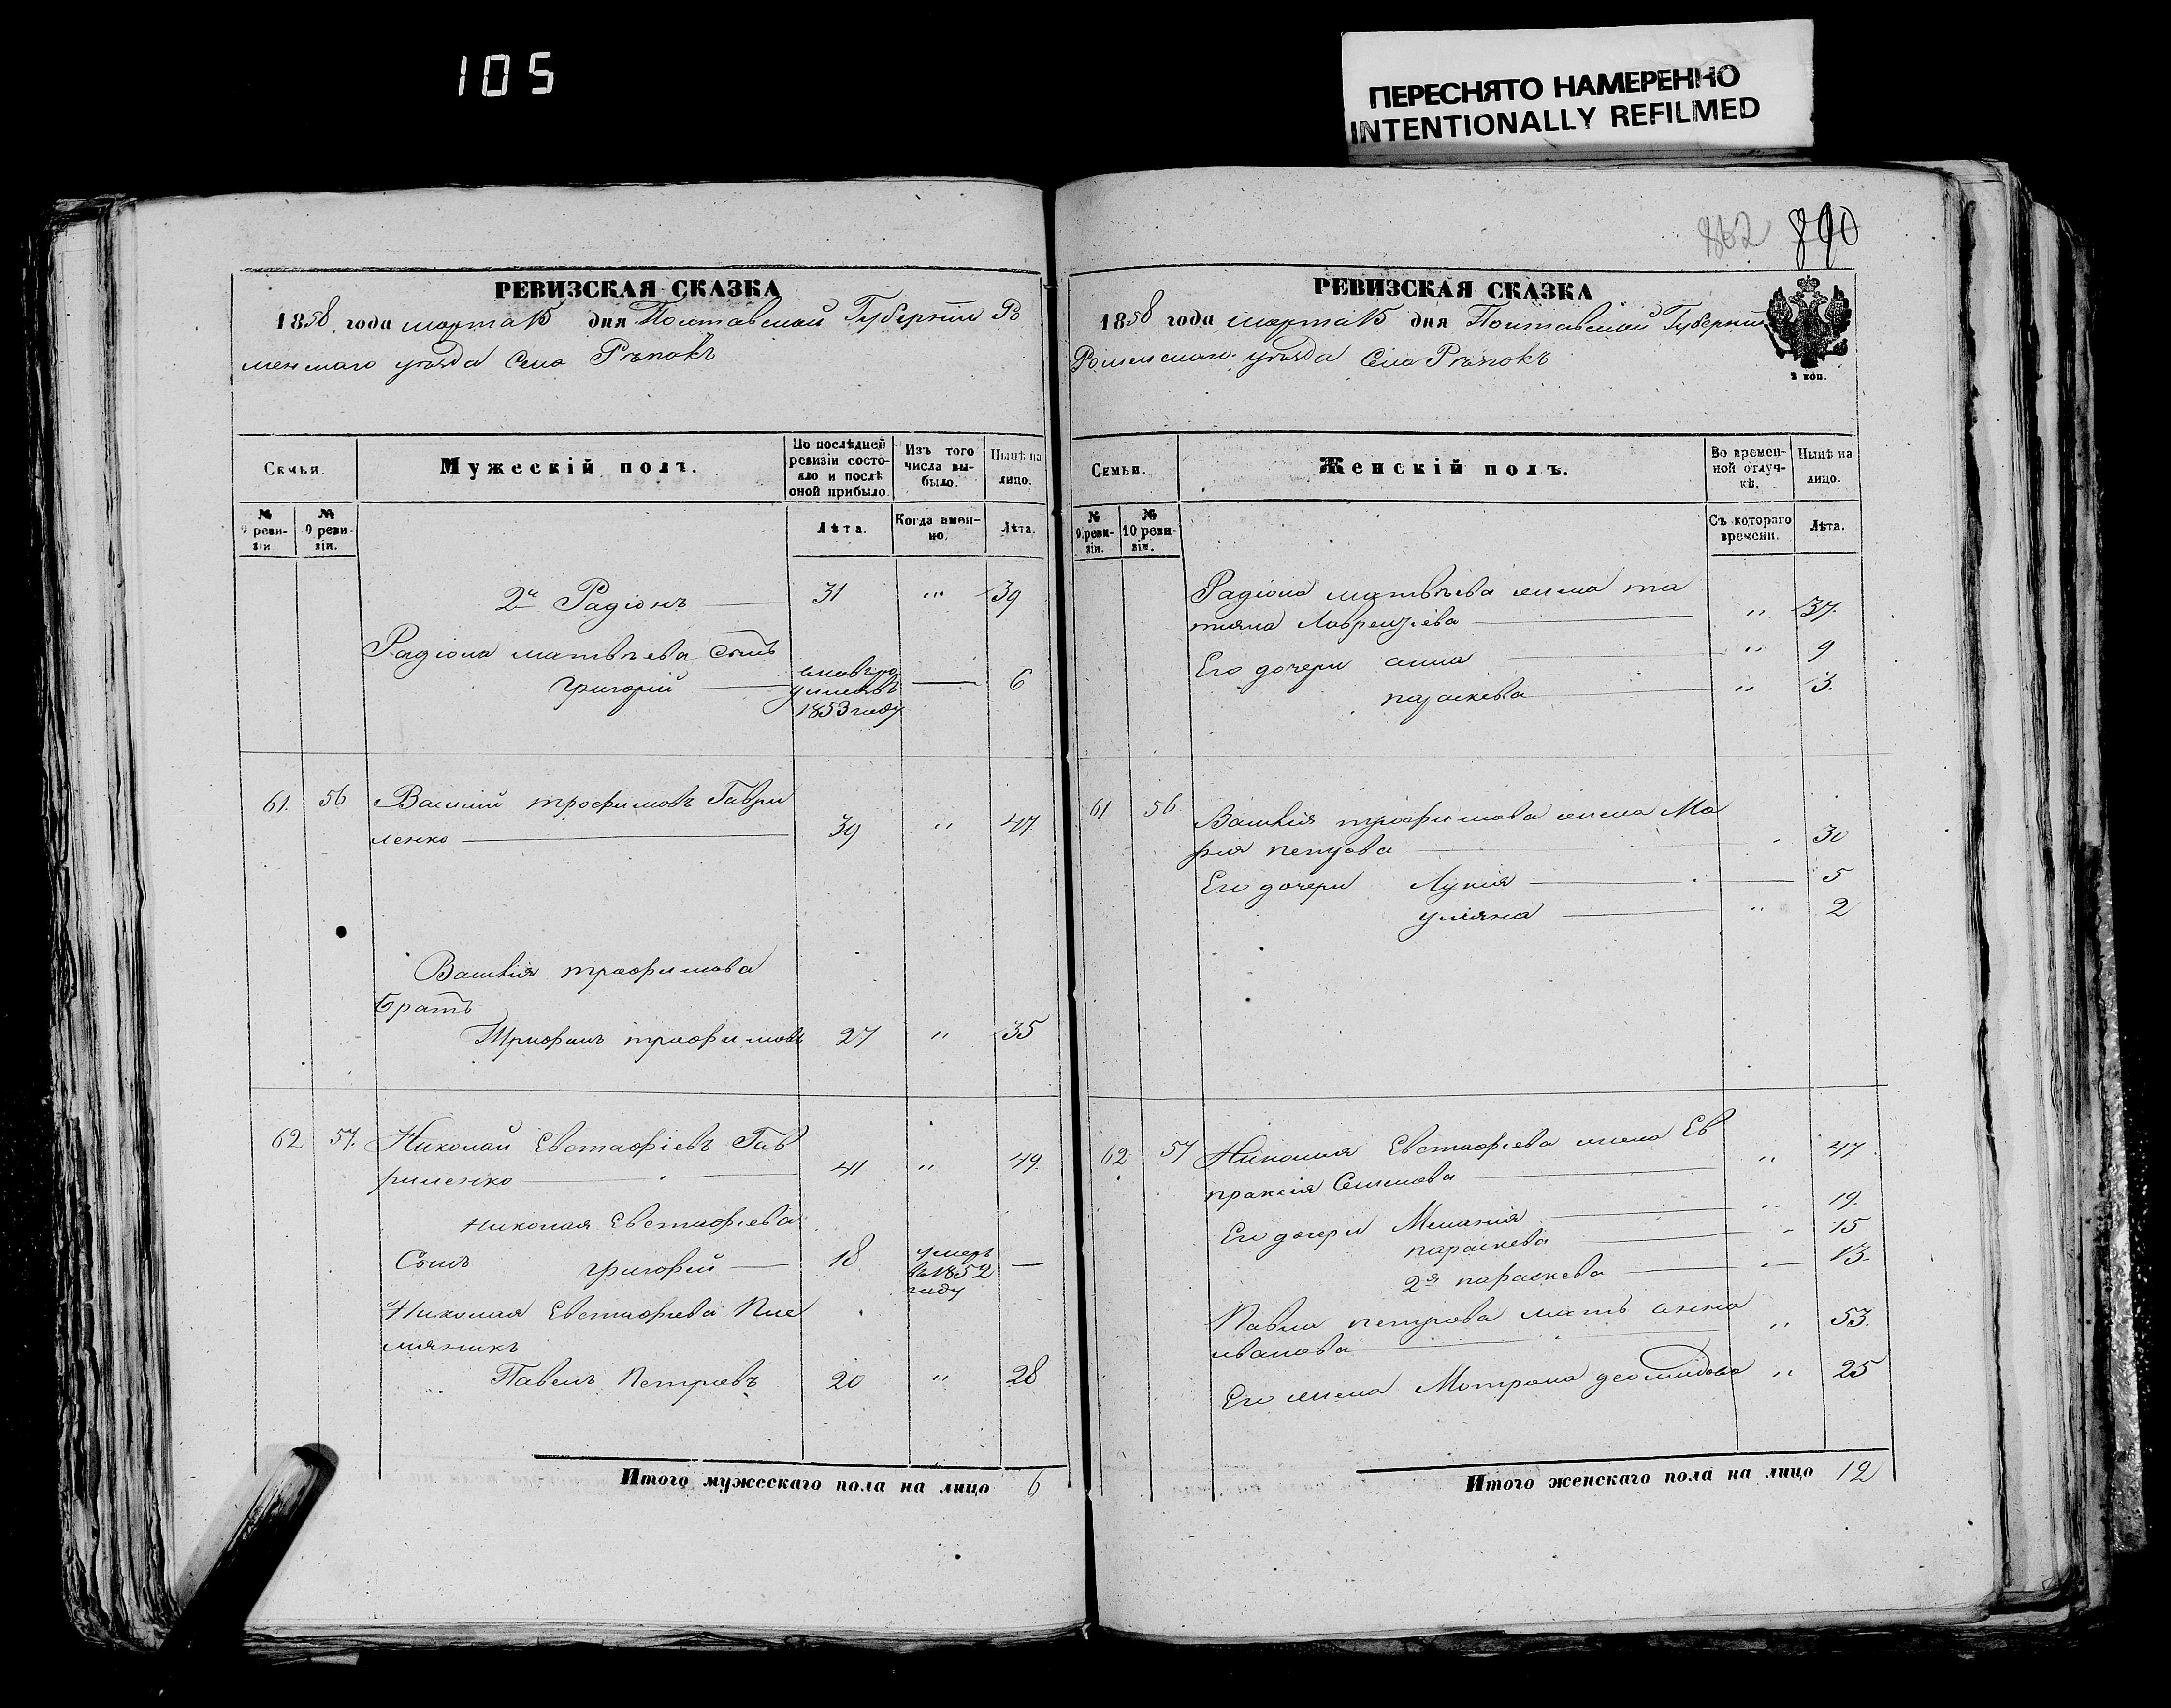 105
ПЕРЕСНЯТО НАМЕРЕННО
INTENTIONALLY REFILMED
862 890
РЕВИЗСКАЯ СКАЗКА
1858 года марта 15 дня Полтавской Губернии Ро
менскаго уѣзда Села Рѣпокъ
Семья.
Мужескій полъ.
По послѣдней
ревизіи состо-
яло и послѣ
оной прибыло
Изъ того
числа вы-
было.
Нынѣ на
лицо.
№
9 реви-
зіи
№
10 реви-
зіи.
Лѣта.
Когда имен-
но.
Лѣта.
2й Радіонъ 31 " 39
Радіона матвѣева Сынъ
григорій 6
1853 году
61. 56 Василій трофимовъ Гаври
ленко 39 " 47.
Василія трофимова
братъ
Трифонъ трофимовъ 27 " 35
62 57. Николай Евстафіевъ Гав
риленко 41 " 49.
Николая Евстафіева
Сынъ григорій 18 умеръ
въ 1852
году
Николая Евстафіева Пле
мяникъ
Павелъ Петровъ 20 " 28
Итого мужескаго пола на лицо 6
РЕВИЗСКАЯ СКАЗКА
1858 года марта 15 дня Полтавской Губерніи
Роменскаго уѣзда Села Рѣпокъ
2 коп.
Семьи.
Женскій полъ.
Во времен-
ной отлуч-
кѣ.
Нынѣ на
лицо.
№
9 реви-
зіи.
№
10 реви-
зіи.
Съ котораго
времени.
Лѣта.
Радіона матвѣева жена та
тияна Лаврентіева " 37.
Его дочери анна " 9
параскева " 3.
61 56 Василія трофимова жена Ма
рия петрова 30
Его дочери Лукия 5
уляна " 2
62 57 Николая Евстафіева жена Ев
праксія Семенова " 47
Его дочери Меланія " 19.
параскева " 15
2я параскева 13.
Павла петрова мать анна
иванова " 53.
Его жена Мотрона деомидова " 25
Итого женскаго пола на лицо 12